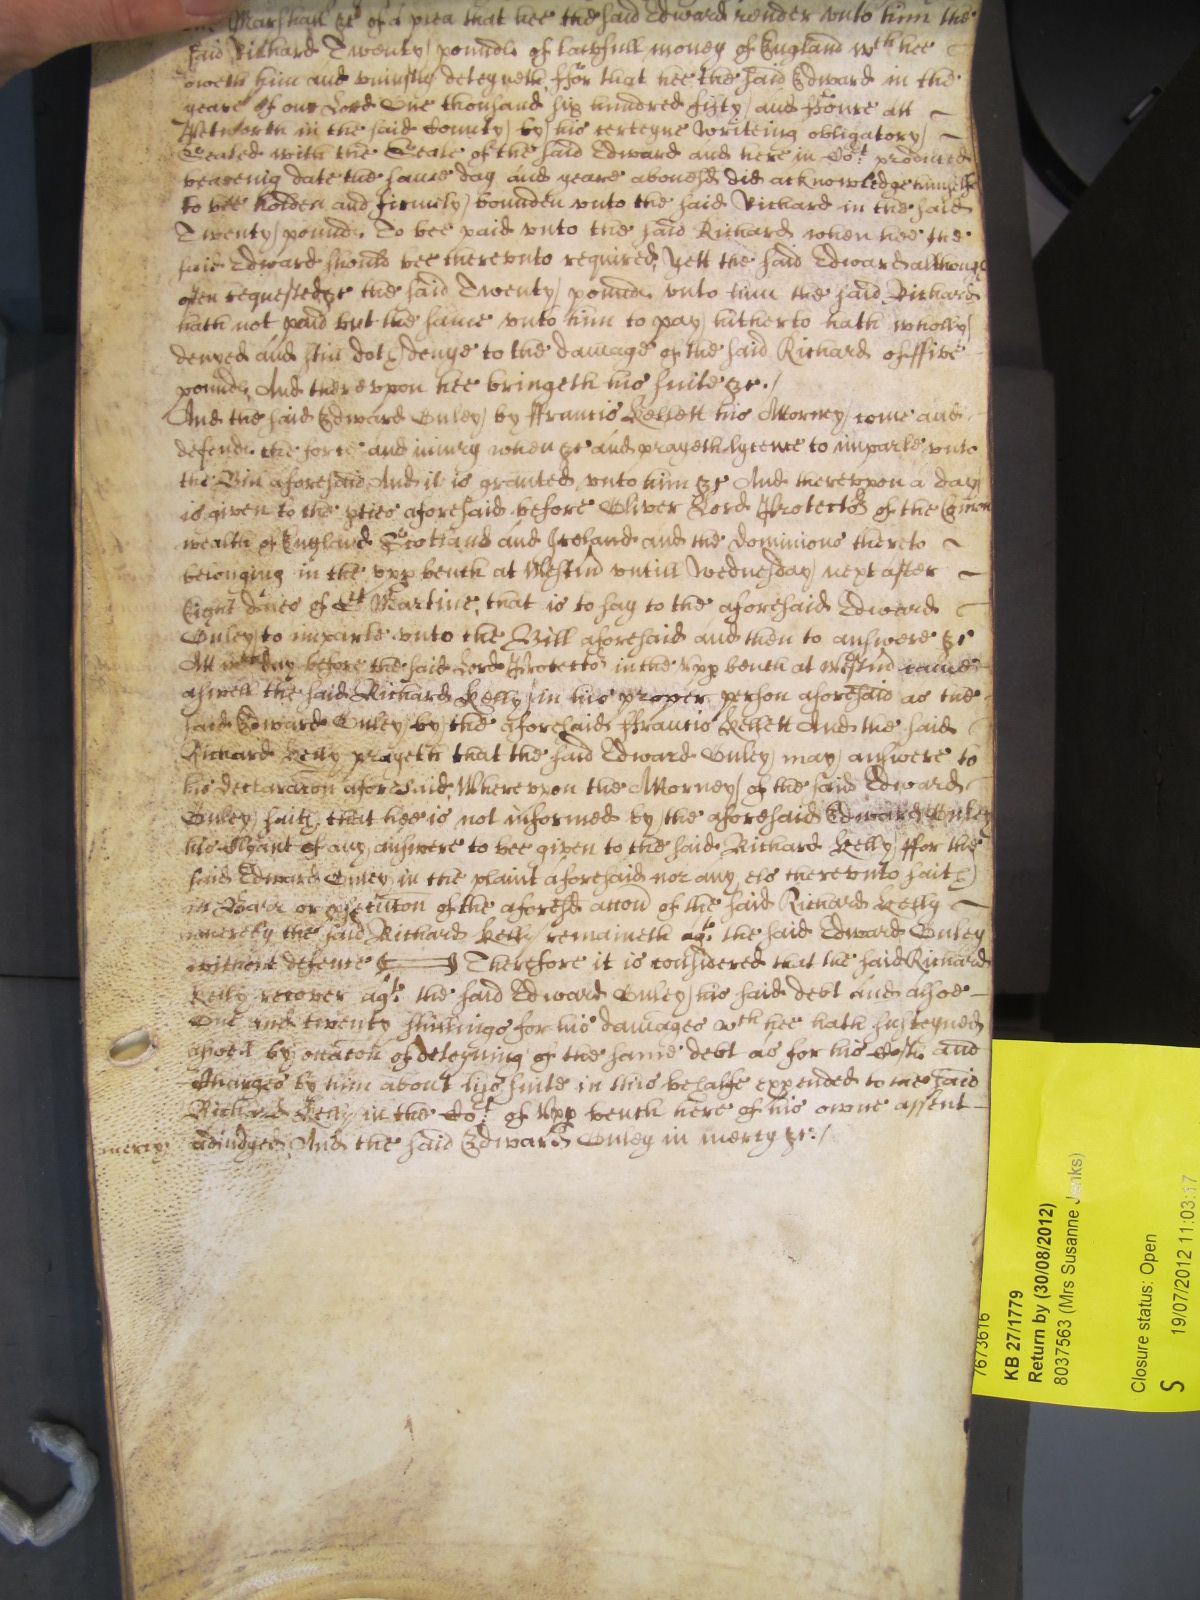 the Marshall &c of a plea that hee the said Edward render vnto him the
said Richard Twenty pounds of lawfull money of England wch hee
oweth him and vniustly deteyneth, ffor that hee the said Edward in the
yeare of our Lord One thousand six hundred fifty and ffoure att
Petworth in the said County by his certeyne writeing obligatory
Sealed with the Seale of the said Edward and here in Cot produced
beareing date the same day and yeare abouesd did acknowledge himselfe
to bee holden and firmely bounden vnto the said Richard in the said
Twenty pounds. To bee paid vnto the said Richard when hee the
said Edward should bee therevnto required, Yett the said Edward although
often requested &c the said Twenty pounds vnto him the said Richard
hath not paid but the same vnto him to pay hitherto hath wholly
denyed and still doth denye to the damage of the said Richard of ffive
pounds, And therevpon hee bringeth his suite &c./
And the said Edward Onley by ffrancis Kellett his Attorney come and
defends the force and iniury when &c and prayeth lycence to imparle vnto
the Bill aforesaid And it is granted vnto him &c And therevpon a day
is given to the pties aforesaid before Oliver Lord Protector of the Comon
wealth of England Scotland and Ireland and the dominions thereto
belonging in the vpp bench at Westm vntill Wednesday next after
Eight daies of St Martine, that is to say to the aforesaid Edward
Onley to imparle vnto the Bill aforesaid and then to answere &c
Att wch day before the said Lord Protector in the Vpp bench at Westm came
aswell the said Richard Kelly in his proper person aforesaid as the
said Edward Onley by the aforesaid ffrancis Kellett And the said
Richard Kelly prayeth that the said Edward Onley may answere to
his declaracon aforesaid, Wherevpon the Attorney of the said Edward
Onley saith, that hee is not informed by the aforesaid Edward Onley
his Clyant of any answere to bee given to the said Richard Kelly ffor the
said Edward Onley in the plaint aforesaid nor any els therevnto saith
in Barr or of the aforesd accon of the said Richard Kelly
whereby the said Richard Kelly remaineth agt the said Edward Onley
without defence Therefore it is considered that the said Richard
Kelly recover agt the said Edward Onley his said debt and alsoe
One and twenty shillings for his damages wch hee hath susteyned
aswell by occacon of deteyning of the same debt as for his Costs and
Charges by him about his suite in this behalfe expended to the said
Richard Kelly in the Cot of Vpp bench here of his owne assent
adiudged, And the said Edward Onley in mercy &c./
mercy
7673616
KB 27/1779
Return by (30/08/2012)
8037563 (Mrs Susanne Jenks)
Closure status: Open
S 19/07/2012 11:03:17